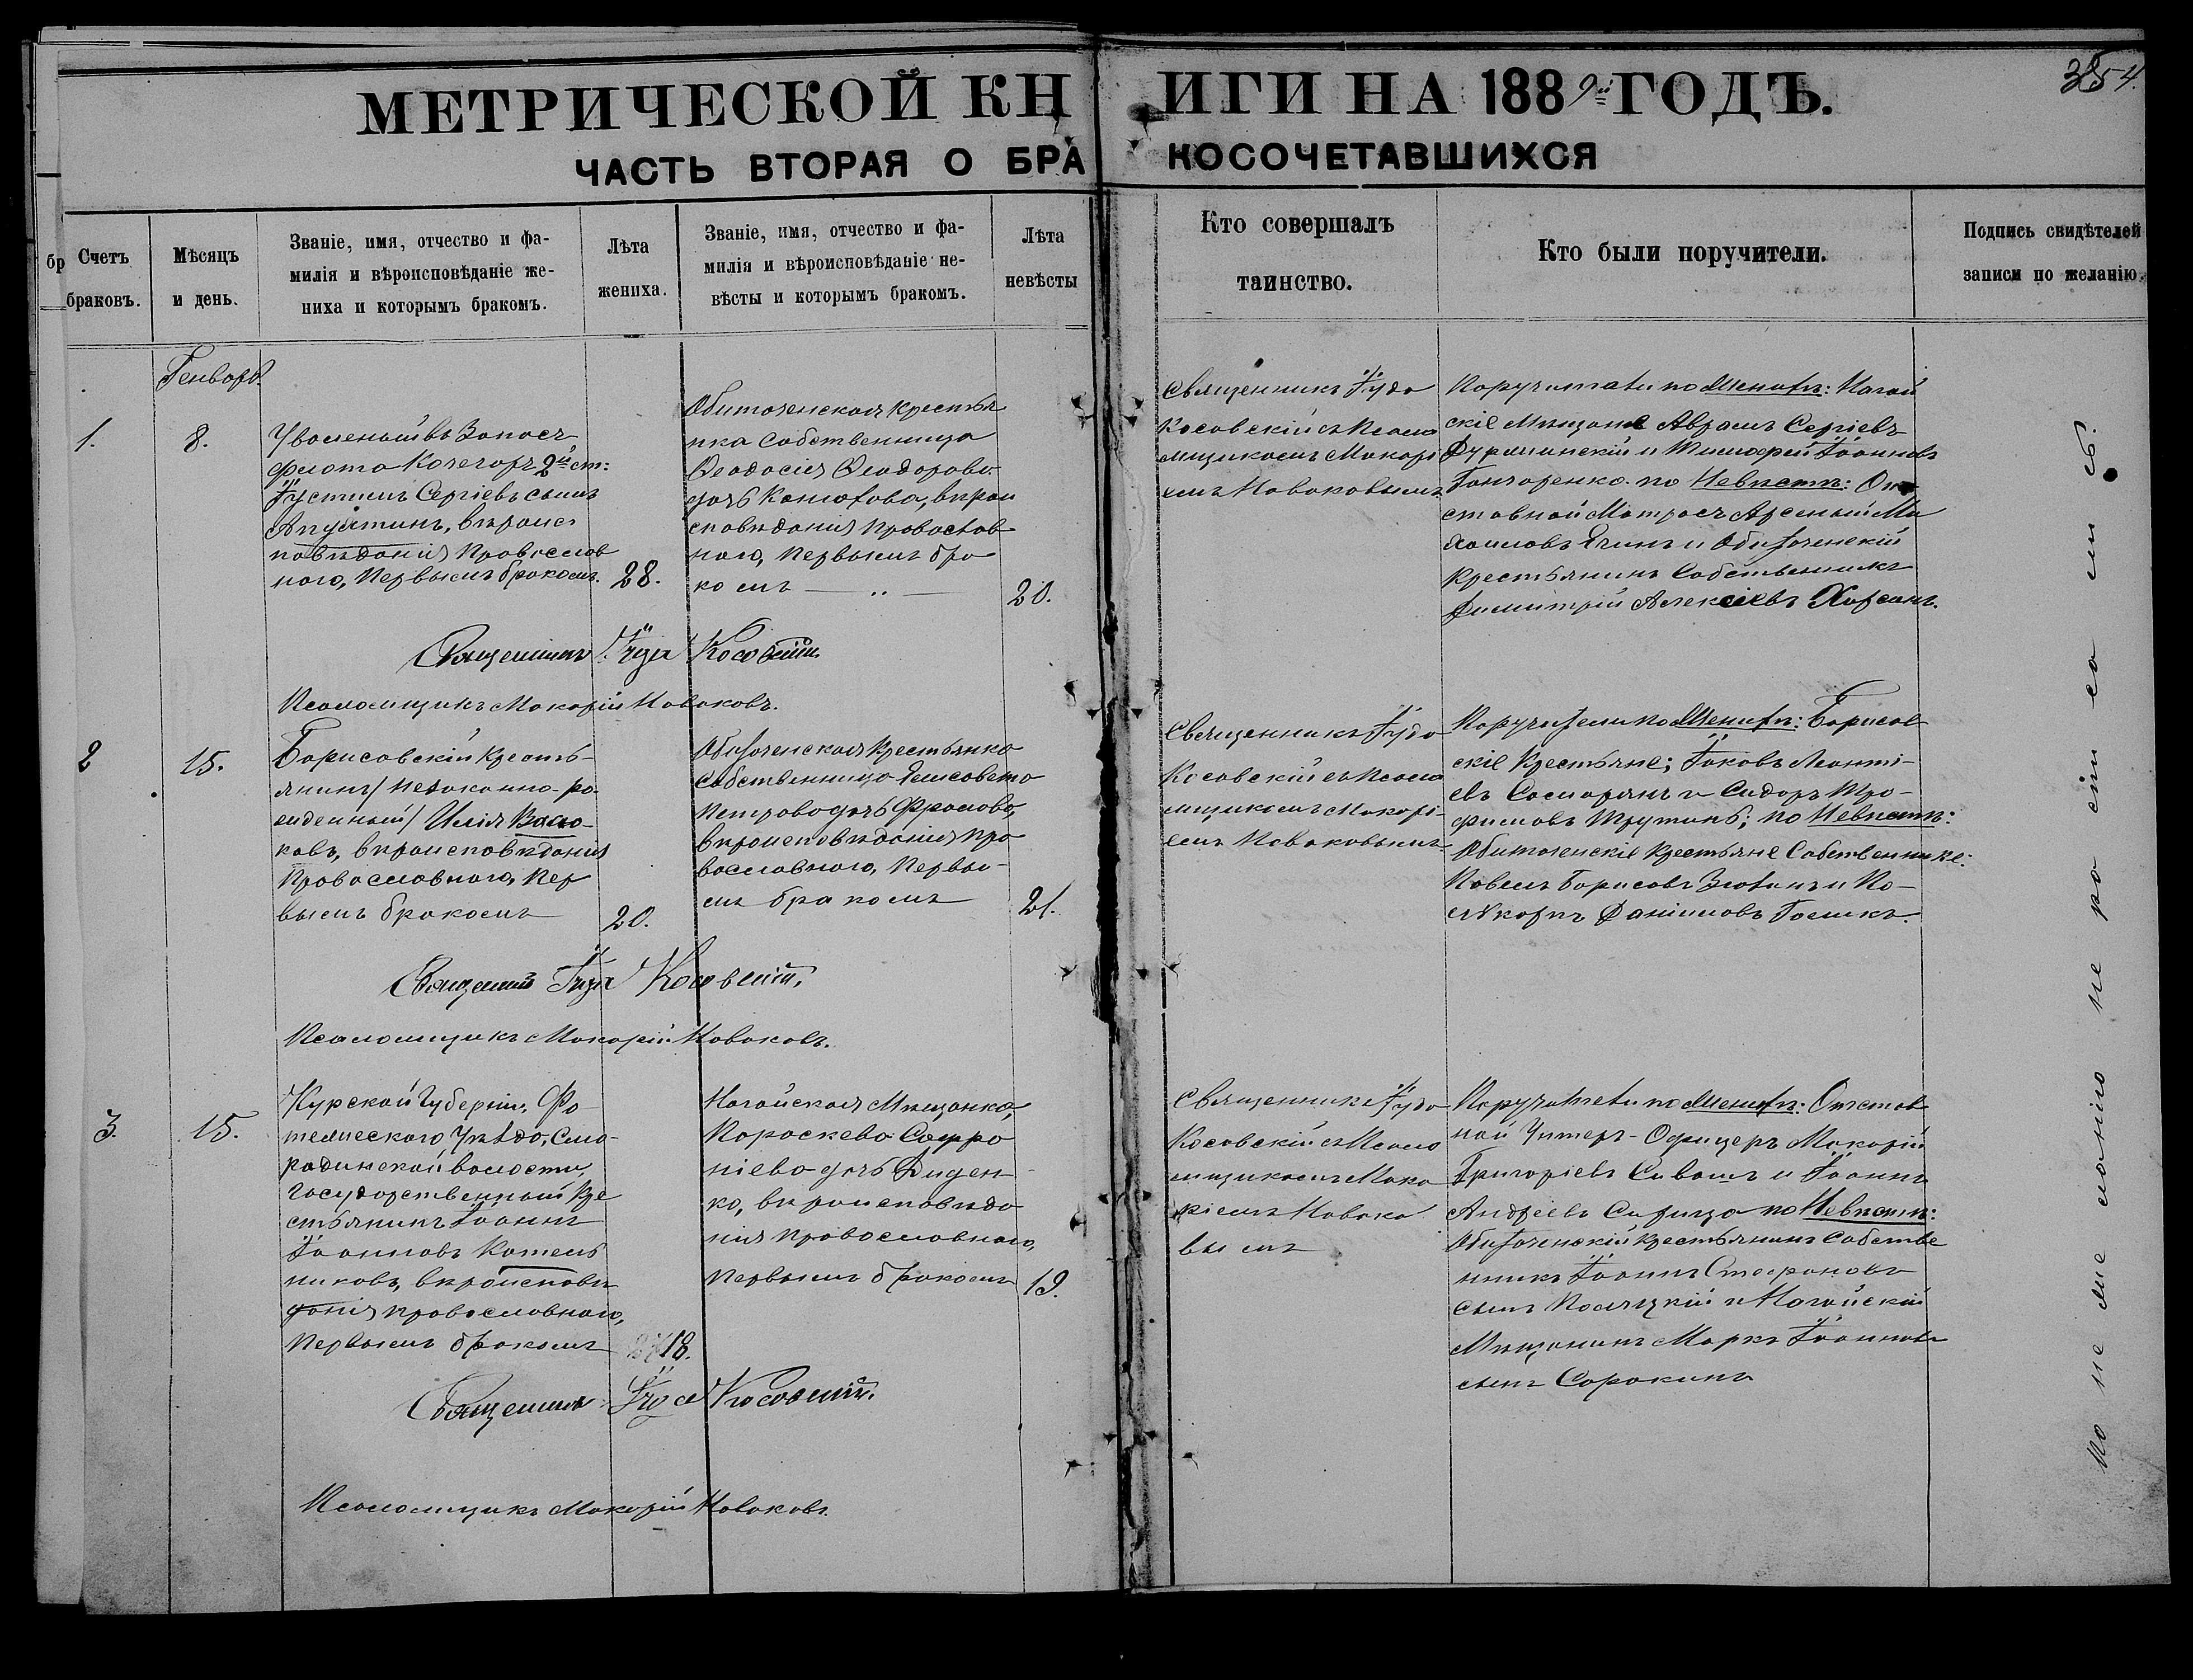 МЕТРИЧЕСКОЙ КНИГИ НА 1889й ГОДЪ.
354.
ЧАСТЬ ВТОРАЯ О БРАКОСОЧЕТАВШИХСЯ
бр
Счетъ
браковъ.
Мѣсяцъ
и день.
Званіе, имя, отчество и фа-
милія и вѣроисповѣданіе же-
ниха и которымъ бракомъ.
Лѣта
жениха.
Званіе, имя, отчество и фа-
милія и вѣроисповѣданіе не-
вѣсты и которымъ бракомъ.
Лѣта
невѣсты
Кто совершалъ
таинство.
Кто были поручители.
Подпись свидѣтелей
записи по желанію.
Генварь.
1.
8.
Уволеный въ Запасъ
флота Кочегаръ 2й ст:
Іустинъ Сергіевъ сынъ
вѣроис
повѣданія Православ
наго, Первымъ бракомъ.
28.
Обиточенская крестья
нка Собственница
Ѳеодосія Ѳеодорова
дочь вѣрои
сповѣданія Православ
наго, Первымъ бра
комъ
20.
Священникъ Іуда
Косовскій съ Псало
мщикомъ Макарі
емъ Новаковымъ
Поручители по Женихѣ: Ногай
скіе Мѣщане Аврамъ Сергіевъ
и Тимофей Іоанновъ
Гончаренко. по Невѣстѣ: От
ставной Матросъ Арсеній Ми
хаиловъ и Обиточенскій
Крестьянинъ Собственникъ
Димитрій Алексіевъ
Священникъ Іуда Косовскій.
Псаломщикъ Макарій Новаковъ.
2
15.
Борисовскій Кресть-
янинъ (незаконно-ро-
жденный) Илія
вѣроисповѣданія
Православнаго, Пер
вымъ бракомъ
20.
Обиточенская Крестьянка
Собственница Елисавета
Петрова дочь Фролова,
вѣроисповѣданія Пра
вославнаго, Первы-
мъ бракомъ
21.
Священникъ Іуда
Косовскій съ Псало
мщикомъ Макарі-
емъ Новаковымъ
Поручители по Женихѣ: Борисов
скіе Крестьяне; Іаковъ Леонті-
евъ и Сидоръ Тро-
фимовъ по Невѣстѣ:
Обиточенскіе Крестьяне Собственники:
Павелъ Борисовъ и По-
ликарпъ Даніиловъ
Священникъ Іуда Косовскій.
Псаломщикъ Макарій Новаковъ.
3.
15.
Курской Губерніи, Фа
тежескаго Уѣзда, Смо-
родинской волости,
Государственный Кре
стьянинъ Іоаннъ
Іоанновъ Котель
никовъ, вѣроисповѣ
данія православнаго,
Первымъ бракомъ
18.
Ногайская Мѣщанка,
Параскева Софро
ніева дочь Диден-
ко, вѣроисповѣда
нія православнаго,
Первымъ бракомъ
19.
Священникъ Іуда
Косовскій съ Псало
мщикомъ Мака
ріемъ Новако
вымъ
Поручители по Женихѣ: Отстав
ной Унтеръ-Офицеръ Макарій
Григоріевъ Сивашъ и Іоаннъ
Андреевъ по Невѣстѣ:
Обиточенскій Крестьянинъ Собстве
нникъ Іоаннъ Стефановъ
сынъ и Ногайскій
Мѣщанинъ Маркъ Іоанновъ
сынъ Сорокинъ
Священникъ Іуда Косовскій.
Псаломщикъ Макарій Новаковъ.